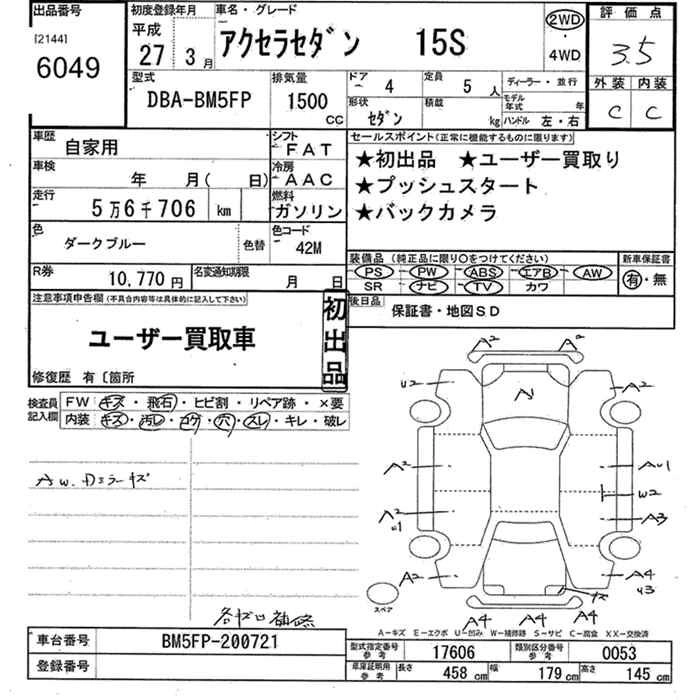 出品番号
[2144]
6049
初度登録年月
平成
27 3月
車名・グレード
アクセラセダン 15S
2WD
・
4WD
評価点
3.5
外装 内装
C C
型式
DBA-BM5FP
排気量
1500
CC
ドア 4
形状 セダン
定員 5 人
積載 kg
ディーラー・並行
モデル年式 年
ハンドル 左・右
車歴 自家用
シフト FAT
車検 年 月( 日)
冷房 AAC
走行 5万6千706 km
燃料 ガソリン
色 ダークブルー 色替
色コード 42M
R券 10,770円
名変通知期限 月 日
セールスポイント(正常に機能するものに限ります)
★初出品 ★ユーザー買取り
★プッシュスタート
★バックカメラ
装備品(純正品に限り〇をつけてください)
新車保証書
PS PW ABS エアB AW
SR ナビ TV カワ
有・無
後日品 保証書・地図SD
注意事項申告欄(不具合内容等は具体的に記入して下さい)
ユーザー買取車
初出品
修復歴 有〔箇所
検査員記入欄
FW キズ・飛石・ヒビ割・リペア跡・×要
内装 キズ・汚レ・コゲ・穴・スレ・キレ・破レ
AW. Dミラーキズ
A² A²
U2 A A²
A² AU1
W2
A² U1 A3
A² A4 U3
キズ
スペア
A4 A4 A4
A-キズ E-エクボ U-凹み W-補修跡 S-サビ C-腐食 XX-交換済
車台番号 BM5FP-200721
登録番号
型式指定番号参考 17606
類別区分番号参考 0053
車庫証明用参考 長さ 458 cm 幅 179 cm 高さ 145 cm